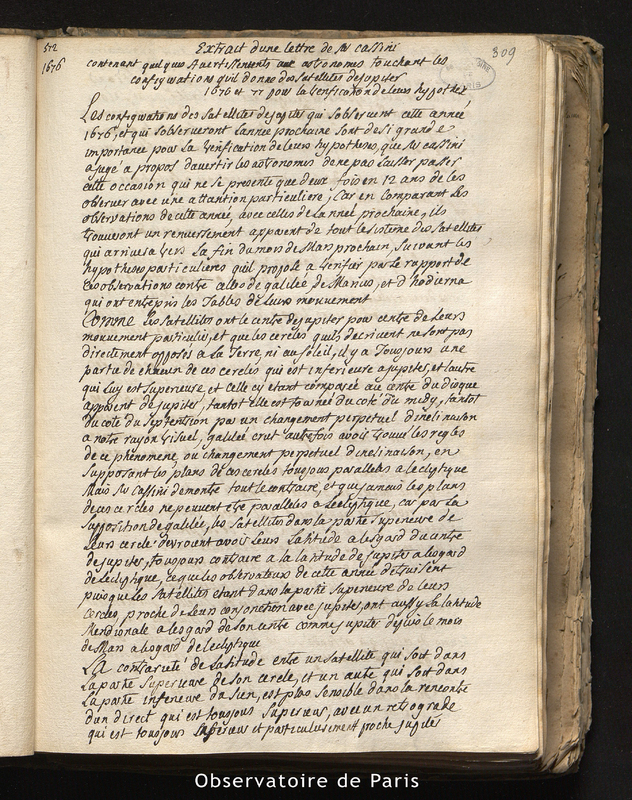 512
1676
309
Extrait d'une lettre de Mr Cassini
contenant quelques Avertissements aux astronomes touchant les
configurations qu'il donne des satellites de jupiter
1676 et 77 pour la verification de leurs hypotheses
Les configurations des satellites de jupiter qui s'observent cette année
1676, et qui s'observeront l'année prochaine sont de si grande
importance pour la verification de leurs hypotheses, que Mr Cassini
a jugé a propos d'avertir les astronomes de ne pas laisser passer
cette occasion qui ne se presente que deux fois en 12 ans de les
observer avec une attantion particuliere; Car en comparant les
observations de cette année, avec celles de l'année prochaine, ils
trouveront un renversement apparent de tout le sisteme des satellites
qui arrivera vers la fin du mois de Mars prochain, suivant les
hypotheses particulieres qu'il propose a verifier par le rapport de
ces observations contre celles de galilée de Marius, et d'hodierna
qui ont entrepris les Tables de leurs mouvement
Comme les satellites ont le centre de jupiter pour centre de leurs
mouvement particulier, et que les cercles qu'ils decrivent ne sont pas
directement opposés a la Terre, ni au soleil, il y a Tousjours une
partie de chacun de ces cercles qui est inferieure a jupiter, et l'autre
qui luy est superieure, et celle cy etant comparée au centre du disque
apparent de jupiter, tantot elle est tournée du coté du midy, tantot
du coté du septentrion par un changement perpetuel d'inclinaison
a notre rayon visuel, galilée crut autrefois avoir trouvé les regles
de ce phenomene ou changement perpetuel d'inclinaison, en
supposant les plans de ces cercles tousjours paralleles a lecliptique
Mais Mr Cassini demontre tout le contraire, et que jamais les plans
de ces cercles ne peuvent etre paralleles a lecliptique, car par la
supposition de galilée, les satellites dans la partie superieure de
leurs cercle devroient avoir leurs latitude a lesgard du centre
de jupiter, tousjours contraire a la latitude de jupiter a lesgard
de lecliptique, ce que les observateurs de cette année detruisent
puisque les satellites etant dans la partie superieure de leurs
cercles, proche de leurs conjonction avec jupiter, ont aussy la latitude
Meridionale a lesgard de son centre comme jupiter depuis le mois
de Mars a lesgard de lecliptique
La contrarieté de latitude entre un satellite qui soit dans
la partie superieure de son cercle, et un autre qui soit dans
la partie inferieure du sien, est plus sensible dans la rencontre
d'un direct qui est tousjours superieur, avec un retrograde
qui est tousjours Inferieur et particulierement proche jupiter
Observatoire de Paris